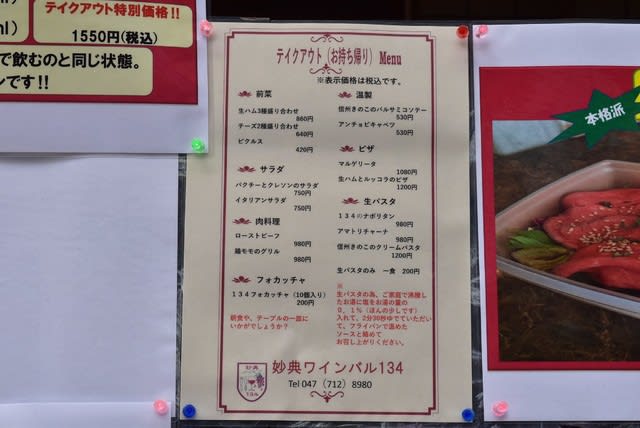 テイクアウト特別価格!!
1550円(税込)
で飲むのと同じ状態。
ンです!!
テイクアウト(お持ち帰り) Menu
※表示価格は税込です。
前菜
生ハム3種盛り合わせ
860円
チーズ2種盛り合わせ
640円
ピクルス
420円
サラダ
パクチーとクレソンのサラダ
750円
イタリアンサラダ
750円
肉料理
ローストビーフ
980円
鶏モモのグリル
980円
フォカッチャ
134フォカッチャ(10個入り)
200円
朝食や、テーブルの一皿に
いかがでしょうか?
温製
信州きのこのバルサミコソテー
530円
アンチョビキャベツ
530円
ピザ
マルゲリータ
1080円
生ハムとルッコラのピザ
1200円
生パスタ
134のナポリタン
980円
アマトリチャーナ
980円
信州きのこのクリームパスタ
1200円
生パスタのみ 一食 200円
※
生パスタの為、ご家庭で沸騰し
たお湯に塩をお湯の量の
0.1%(ほんの少しです)
入れて、2分30秒ゆでていただい
て、フライパンで温めた
ソースと絡めて
お召し上がりください。
妙典
134
妙典ワインバル134
Tel 047 (712) 8980
本格派